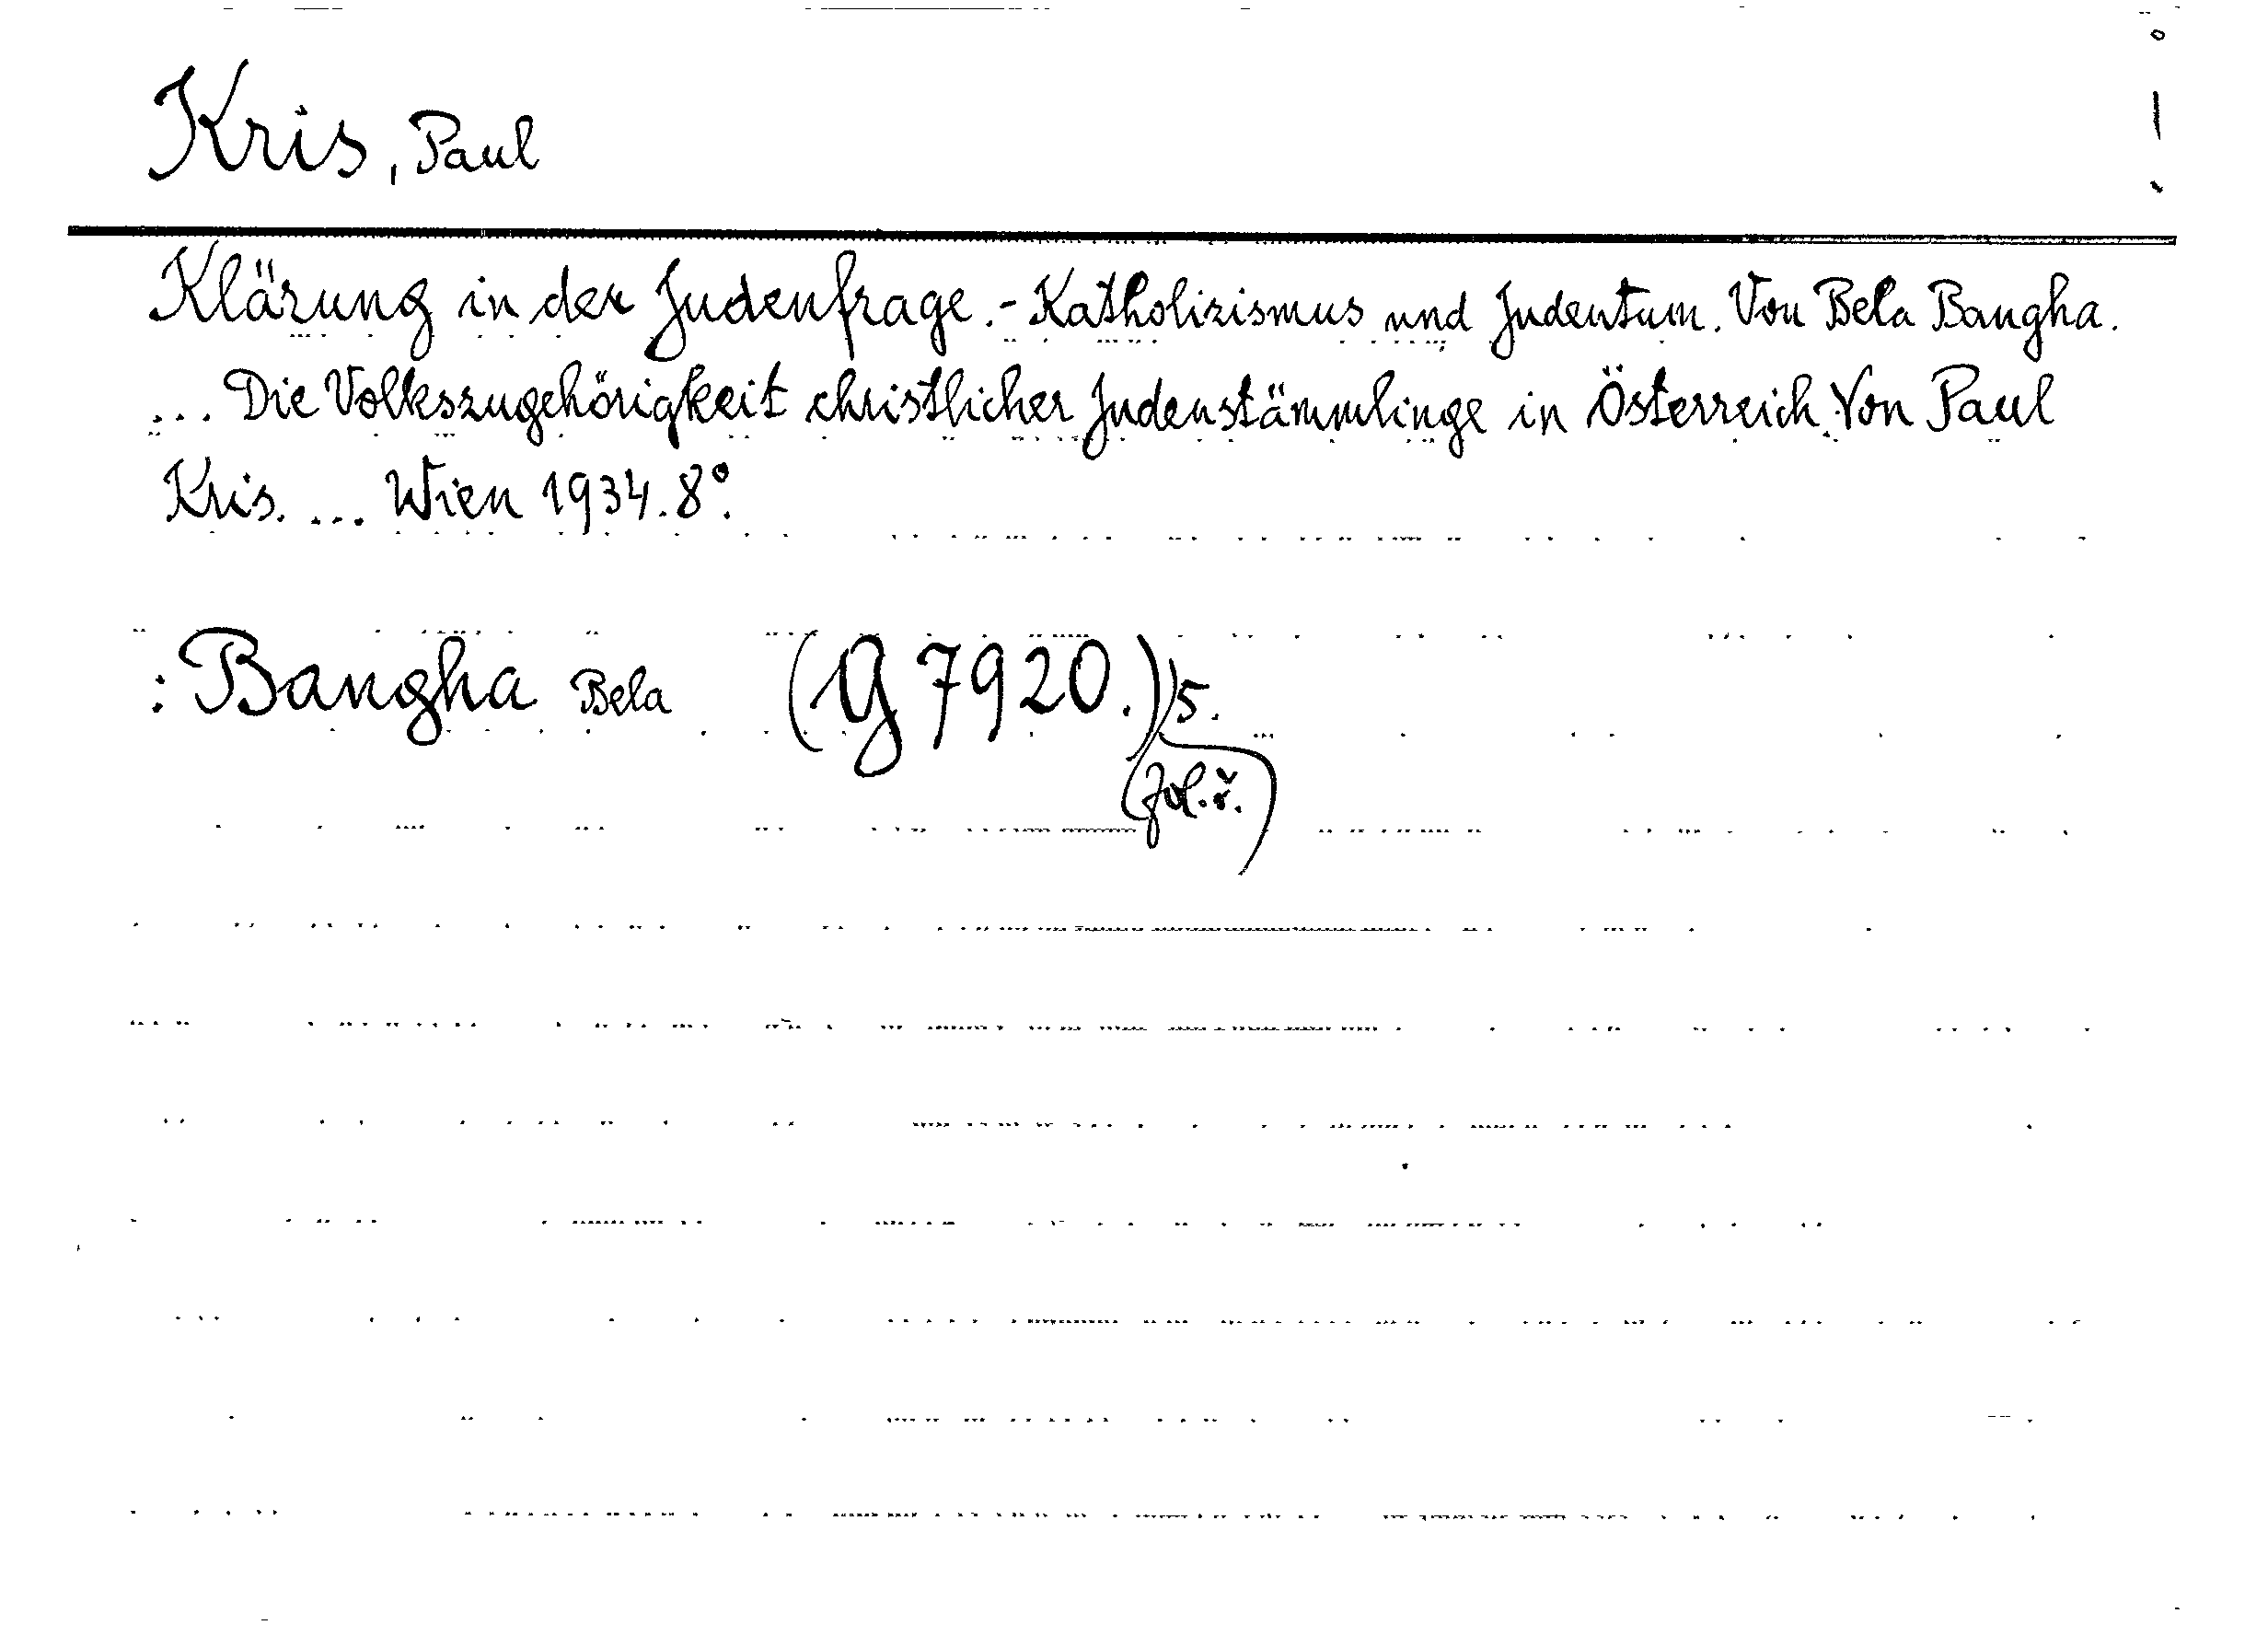 Kris, Paul
Klärung in der Judenfrage.- Katholizismus und Judentum. Von Bela Bangha.
... Die Volkszugehörigkeit christlicher Judenstämmlinge in Österreich. Von Paul
Kris. ... Wien 1934. 8°.
: Bangha Bela (G 7920.) 5.
(fol. ř.)